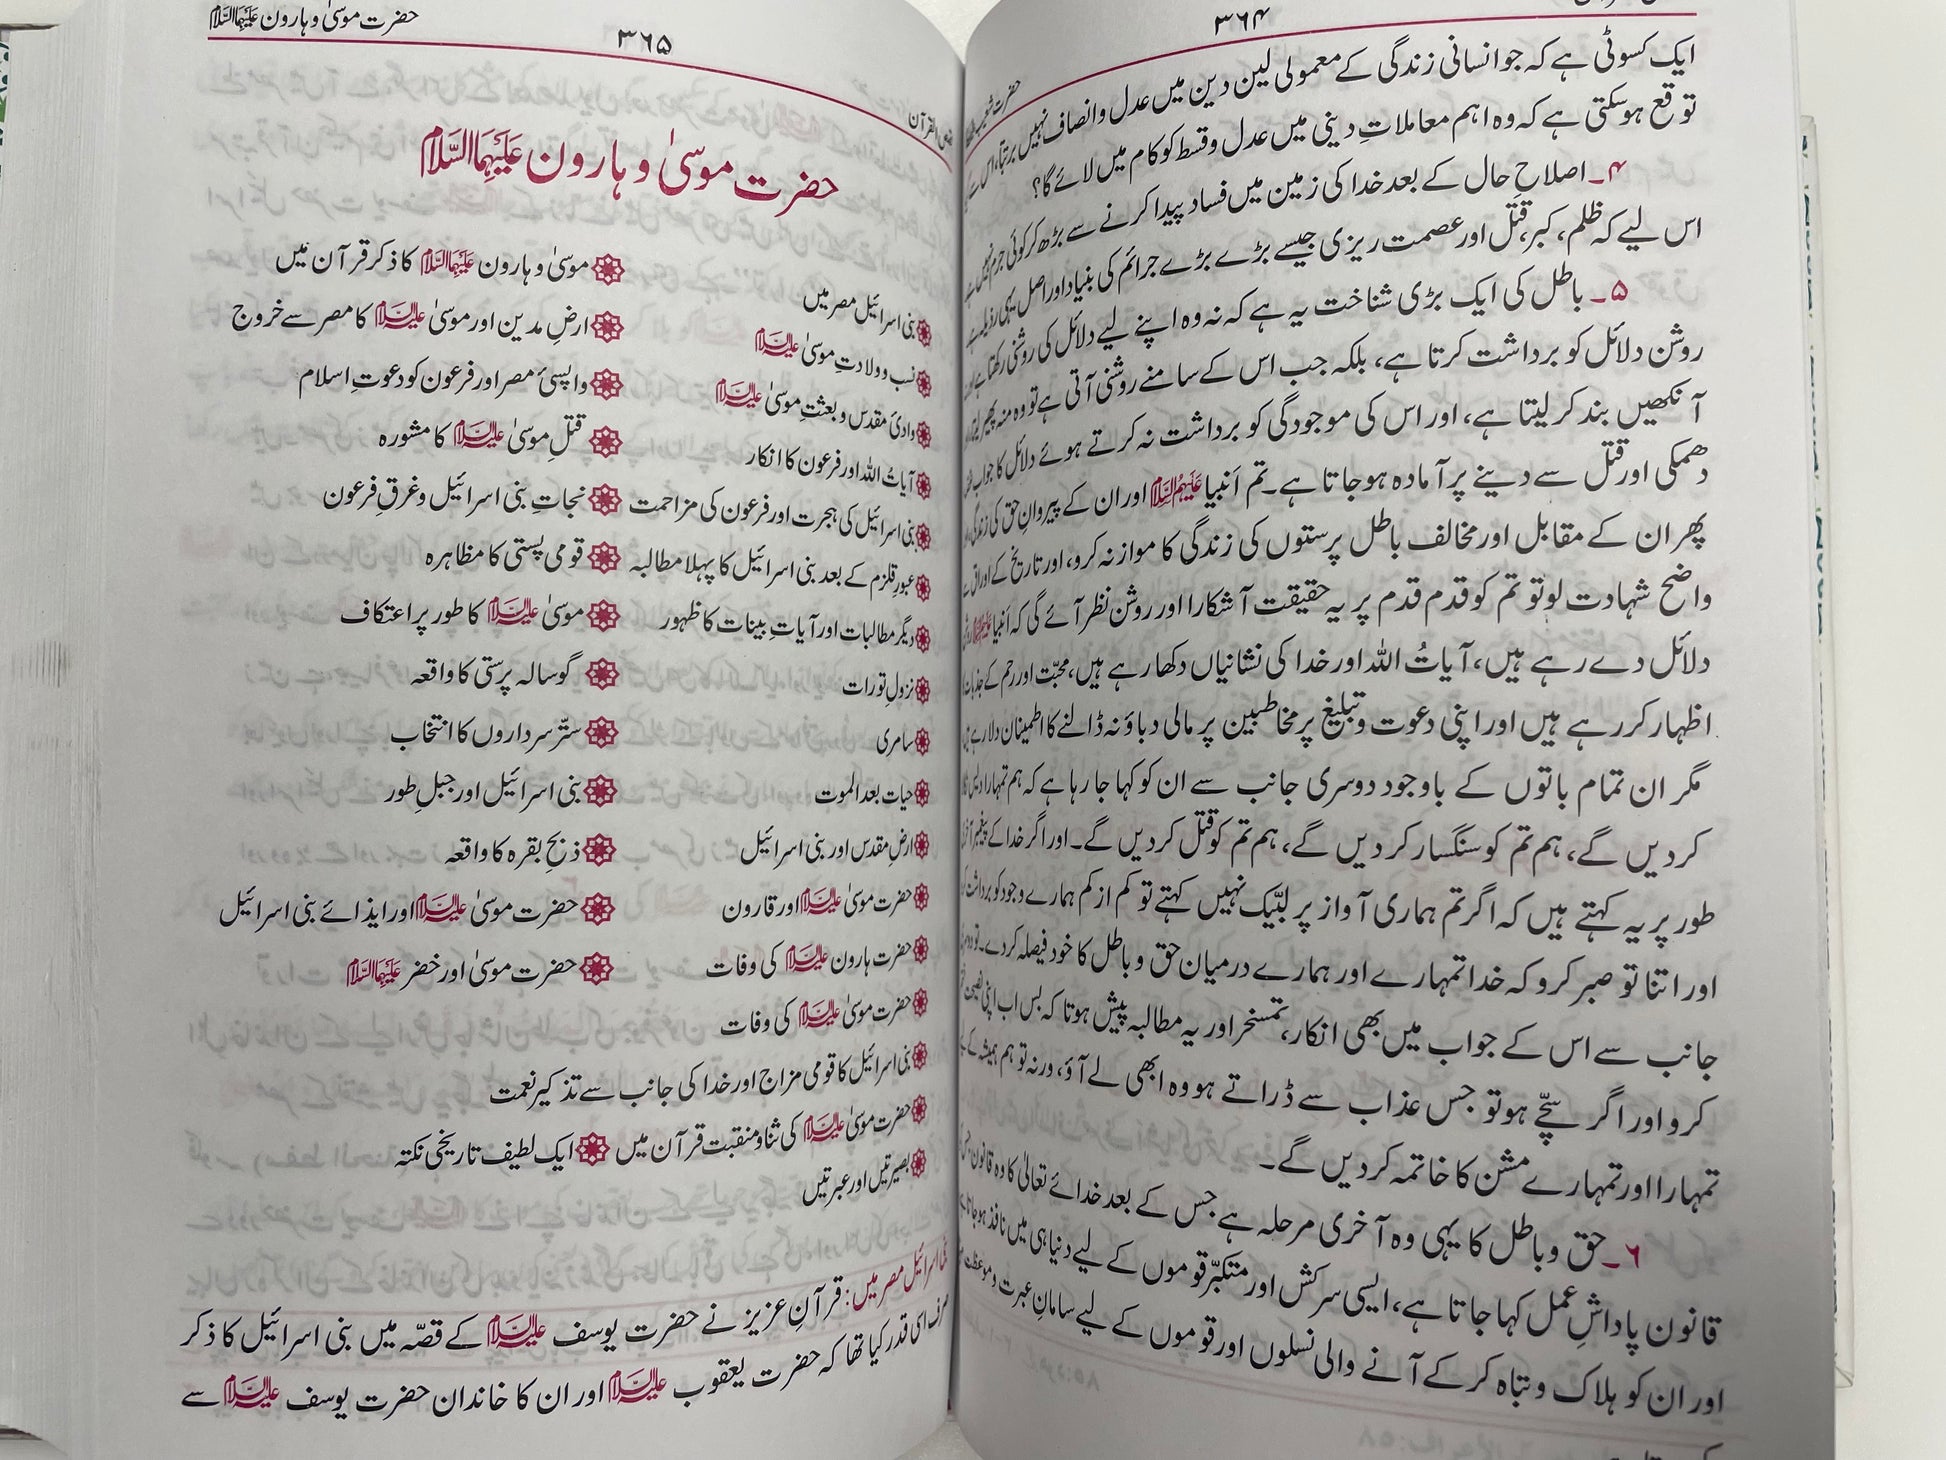 ۳۶۴
ایک کسوٹی ہے کہ جو انسانی زندگی کے معمولی لین دین میں عدل و انصاف نہیں برتتا، اس سے
توقع ہوسکتی ہے کہ وہ اہم معاملاتِ دینی میں عدل و قسط کو کام میں لائے گا؟
۴۔ اصلاحِ حال کے بعد خدا کی زمین میں فساد پیدا کرنے سے بڑھ کر کوئی جرم نہیں ہے
اس لیے کہ ظلم، کبر، قتل اور عصمت ریزی جیسے بڑے بڑے جرائم کی بنیاد اور اصل یہی رذیلہ ہے
۵۔ باطل کی ایک بڑی شناخت یہ ہے کہ نہ وہ اپنے لیے دلائل کی روشنی رکھتا ہے اور
روشن دلائل کو برداشت کرتا ہے، بلکہ جب اس کے سامنے روشنی آتی ہے تو وہ منہ پھیر لیتا
آنکھیں بند کرلیتا ہے، اور اس کی موجودگی کو برداشت نہ کرتے ہوئے دلائل کا جواب
دھمکی اور قتل سے دینے پر آمادہ ہوجاتا ہے۔ تم اَنبیا علیہم السلام اور ان کے پیروانِ حق کی زندگی
پھر ان کے مقابل اور مخالف باطل پرستوں کی زندگی کا موازنہ کرو، اور تاریخ کے اوراق سے
واضح شہادت لو تو تم کو قدم قدم پر یہ حقیقت آشکارا اور روشن نظر آئے گی کہ اَنبیا علیہم السلام
دلائل دے رہے ہیں، آیاتُ اللہ اور خدا کی نشانیاں دکھا رہے ہیں، محبّت اور رحم کے جذبات
اظہار کررہے ہیں اور اپنی دعوت و تبلیغ پر مخاطبین پر مالی دباؤ نہ ڈالنے کا اطمینان دلا رہے ہیں
مگر ان تمام باتوں کے باوجود دوسری جانب سے ان کو کہا جارہا ہے کہ ہم تمہارا
کردیں گے، ہم تم کو سنگسار کردیں گے، ہم تم کو قتل کردیں گے۔ اور اگر خدا کے پیغمبر
طور پر یہ کہتے ہیں کہ اگر تم ہماری آواز پر لبّیک نہیں کہتے تو کم از کم ہمارے وجود کو برداشت
اور اتنا تو صبر کرو کہ خدا تمہارے اور ہمارے درمیان حق و باطل کا خود فیصلہ کردے۔
جانب سے اس کے جواب میں بھی انکار، تمسخر اور یہ مطالبہ پیش ہوتا کہ بس اب اپنی
کرو اور اگر سچّے ہو تو جس عذاب سے ڈراتے ہو وہ ابھی لے آؤ، ورنہ تو ہم ہمیشہ کے
تمہارا اور تمہارے مشن کا خاتمہ کردیں گے۔
۶۔ حق و باطل کا یہی وہ آخری مرحلہ ہے جس کے بعد خدائے تعالیٰ کا وہ قانون
قانون پاداشِ عمل کہا جاتا ہے، ایسی سرکش اور متکبّر قوموں کے لیے دنیا ہی میں نافذ ہوجاتا ہے
اور ان کو ہلاک و تباہ کرکے آنے والی نسلوں اور قوموں کے لیے سامانِ عبرت و موعظت
۳۶۵
حضرت موسیٰ و ہارون علیہما السلام
حضرت موسیٰ و ہارون علیہما السلام
موسیٰ و ہارون علیہما السلام کا ذکر قرآن میں
بنی اسرائیل مصر میں
ارضِ مدین اور موسیٰ علیہ السلام کا مصر سے خروج
نسب و ولادتِ موسیٰ علیہ السلام
واپسیٔ مصر اور فرعون کو دعوتِ اسلام
وادیٔ مقدس و بعثتِ موسیٰ علیہ السلام
قتلِ موسیٰ علیہ السلام کا مشورہ
آیاتُ اللہ اور فرعون کا انکار
نجاتِ بنی اسرائیل و غرقِ فرعون
بنی اسرائیل کی ہجرت اور فرعون کی مزاحمت
قومی پستی کا مظاہرہ
عبورِ قلزم کے بعد بنی اسرائیل کا پہلا مطالبہ
موسیٰ علیہ السلام کا طور پر اعتکاف
دیگر مطالبات اور آیاتِ بینات کا ظہور
گوسالہ پرستی کا واقعہ
نزولِ تورات
ستّر سرداروں کا انتخاب
سامری
بنی اسرائیل اور جبلِ طور
حیات بعد الموت
ذبحِ بقرہ کا واقعہ
ارضِ مقدس اور بنی اسرائیل
حضرت موسیٰ علیہ السلام اور ایذائے بنی اسرائیل
حضرت موسیٰ علیہ السلام اور قارون
حضرت موسیٰ اور خضر علیہما السلام
حضرت ہارون علیہ السلام کی وفات
حضرت موسیٰ علیہ السلام کی وفات
بنی اسرائیل کا قومی مزاج اور خدا کی جانب سے تذکیرِ نعمت
حضرت موسیٰ علیہ السلام کی ثنا و منقبت قرآن میں
ایک لطیف تاریخی نکتہ
بصیرتیں اور عبرتیں
بنی اسرائیل مصر میں: قرآنِ عزیز نے حضرت یوسف علیہ السلام کے قصّہ میں بنی اسرائیل کا ذکر
صرف اسی قدر کیا تھا کہ حضرت یعقوب علیہ السلام اور ان کا خاندان حضرت یوسف علیہ السلام سے